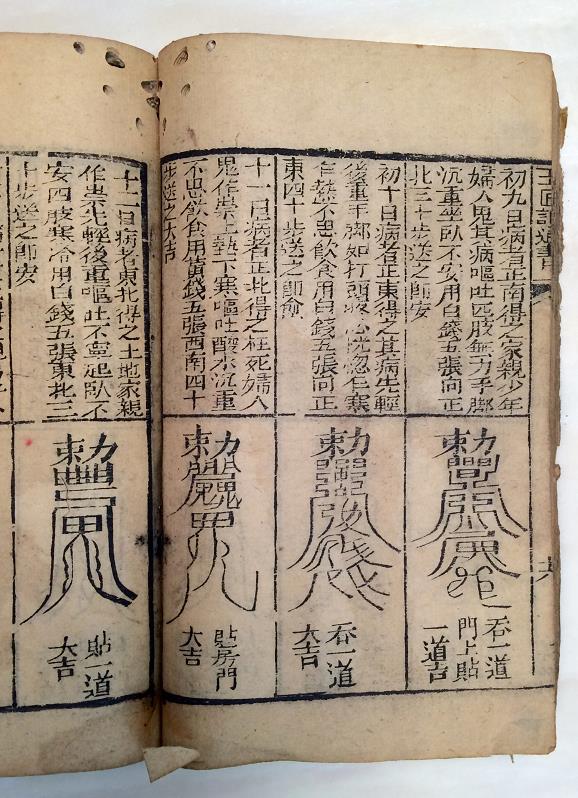 初九日病者正南得之家親少年
婦人鬼其病嘔吐四肢無力手脚
沉重坐臥不安用白錢五張向正
北三十步送之即安
勅
吞一道
門上貼
一道吉
初十日病者正東得之其病先輕
後重手脚如打頭
乍熱不思飲食用白錢五張向正
東四十步送之即愈
勅
吞一道
大吉
十一日病者正北得之枉死婦人
鬼作祟上熱下寒嘔吐酸水沉重
不思飲食用黃錢五張西南四十
步送之大吉
勅
貼房門
大吉
十二日病者東北得之土地家親
作祟先輕後重嘔吐不寧起臥不
安四肢寒冷用白錢五張東北三
十步送之即安
勅
貼一道
大吉